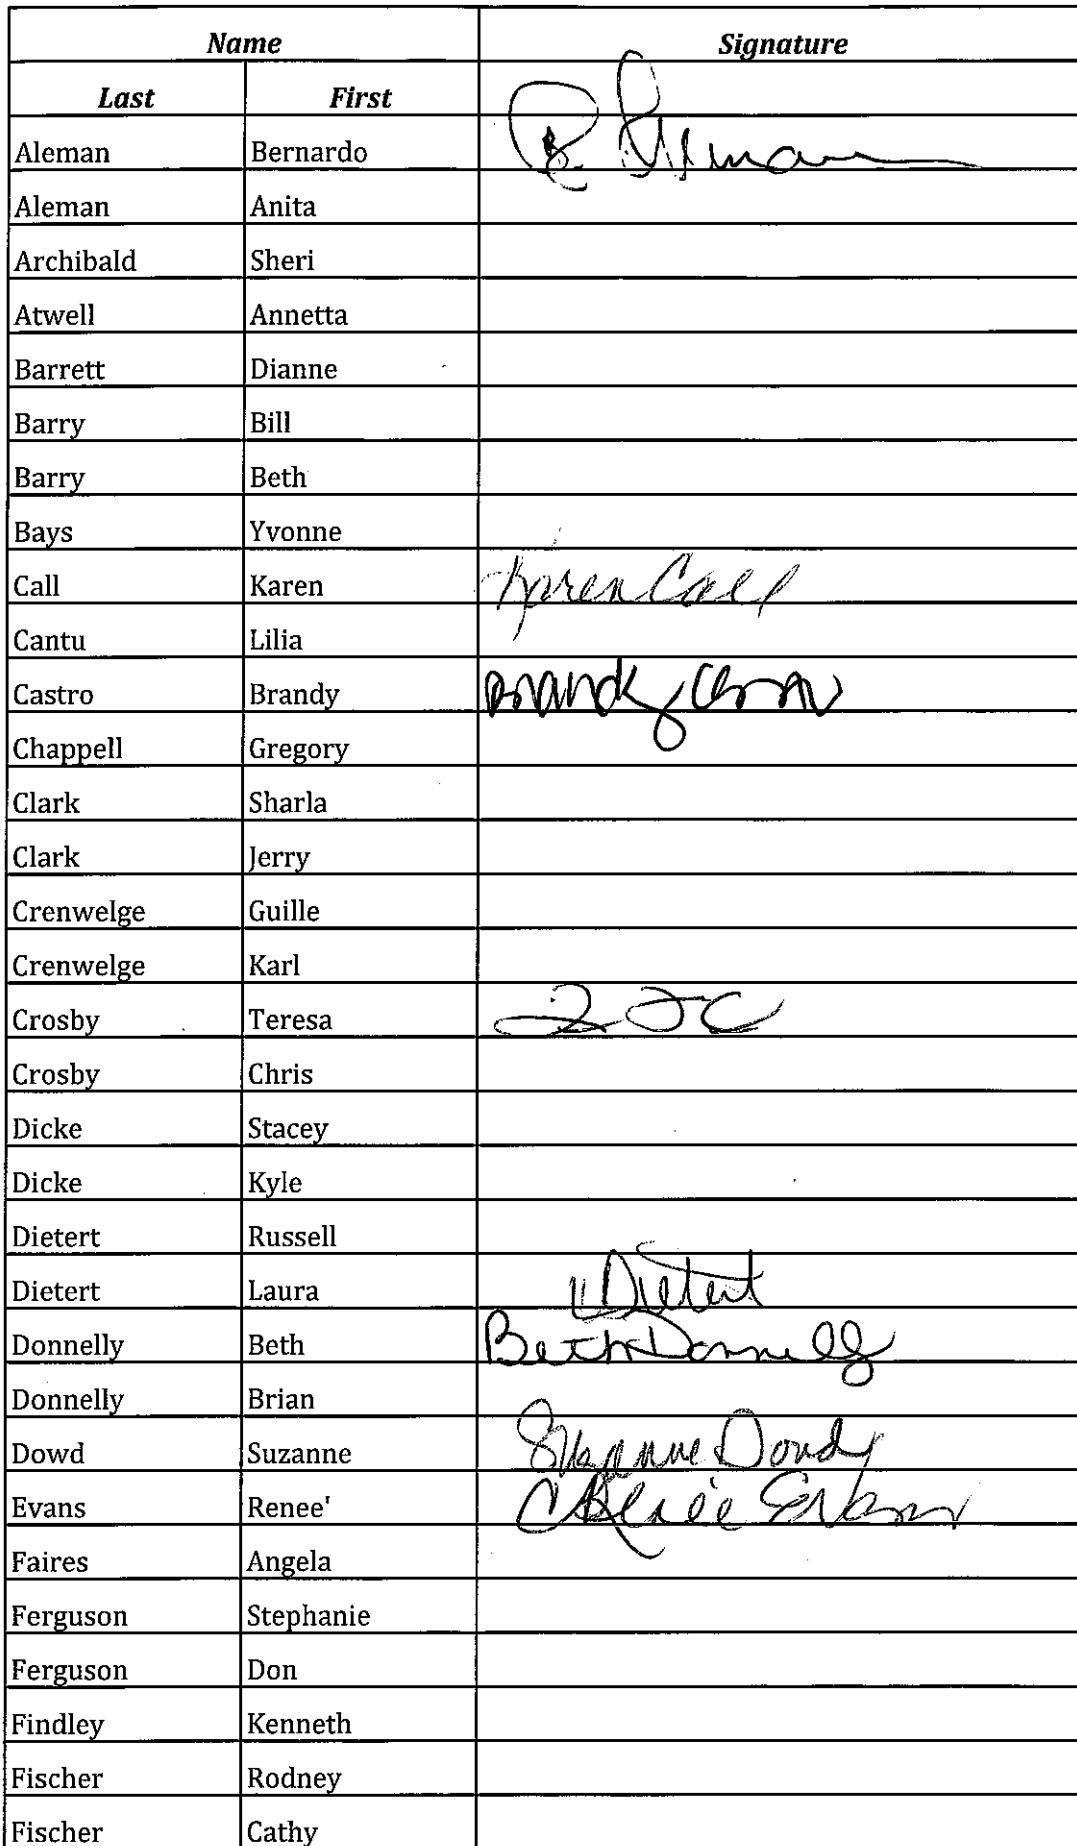 Name Signature
Last First
Aleman Bernardo
Aleman Anita
Archibald Sheri
Atwell Annetta
Barrett Dianne
Barry Bill
Barry Beth
Bays Yvonne
Call Karen Karen Call
Cantu Lilia
Castro Brandy Brandy
Chappell Gregory
Clark Sharla
Clark Jerry
Crenwelge Guille
Crenwelge Karl
Crosby Teresa
Crosby Chris
Dicke Stacey
Dicke Kyle
Dietert Russell
Dietert Laura LDietert
Donnelly Beth Beth Donnelly
Donnelly Brian
Dowd Suzanne Suzanne Dowdy
Evans Renee' Renée Evans
Faires Angela
Ferguson Stephanie
Ferguson Don
Findley Kenneth
Fischer Rodney
Fischer Cathy